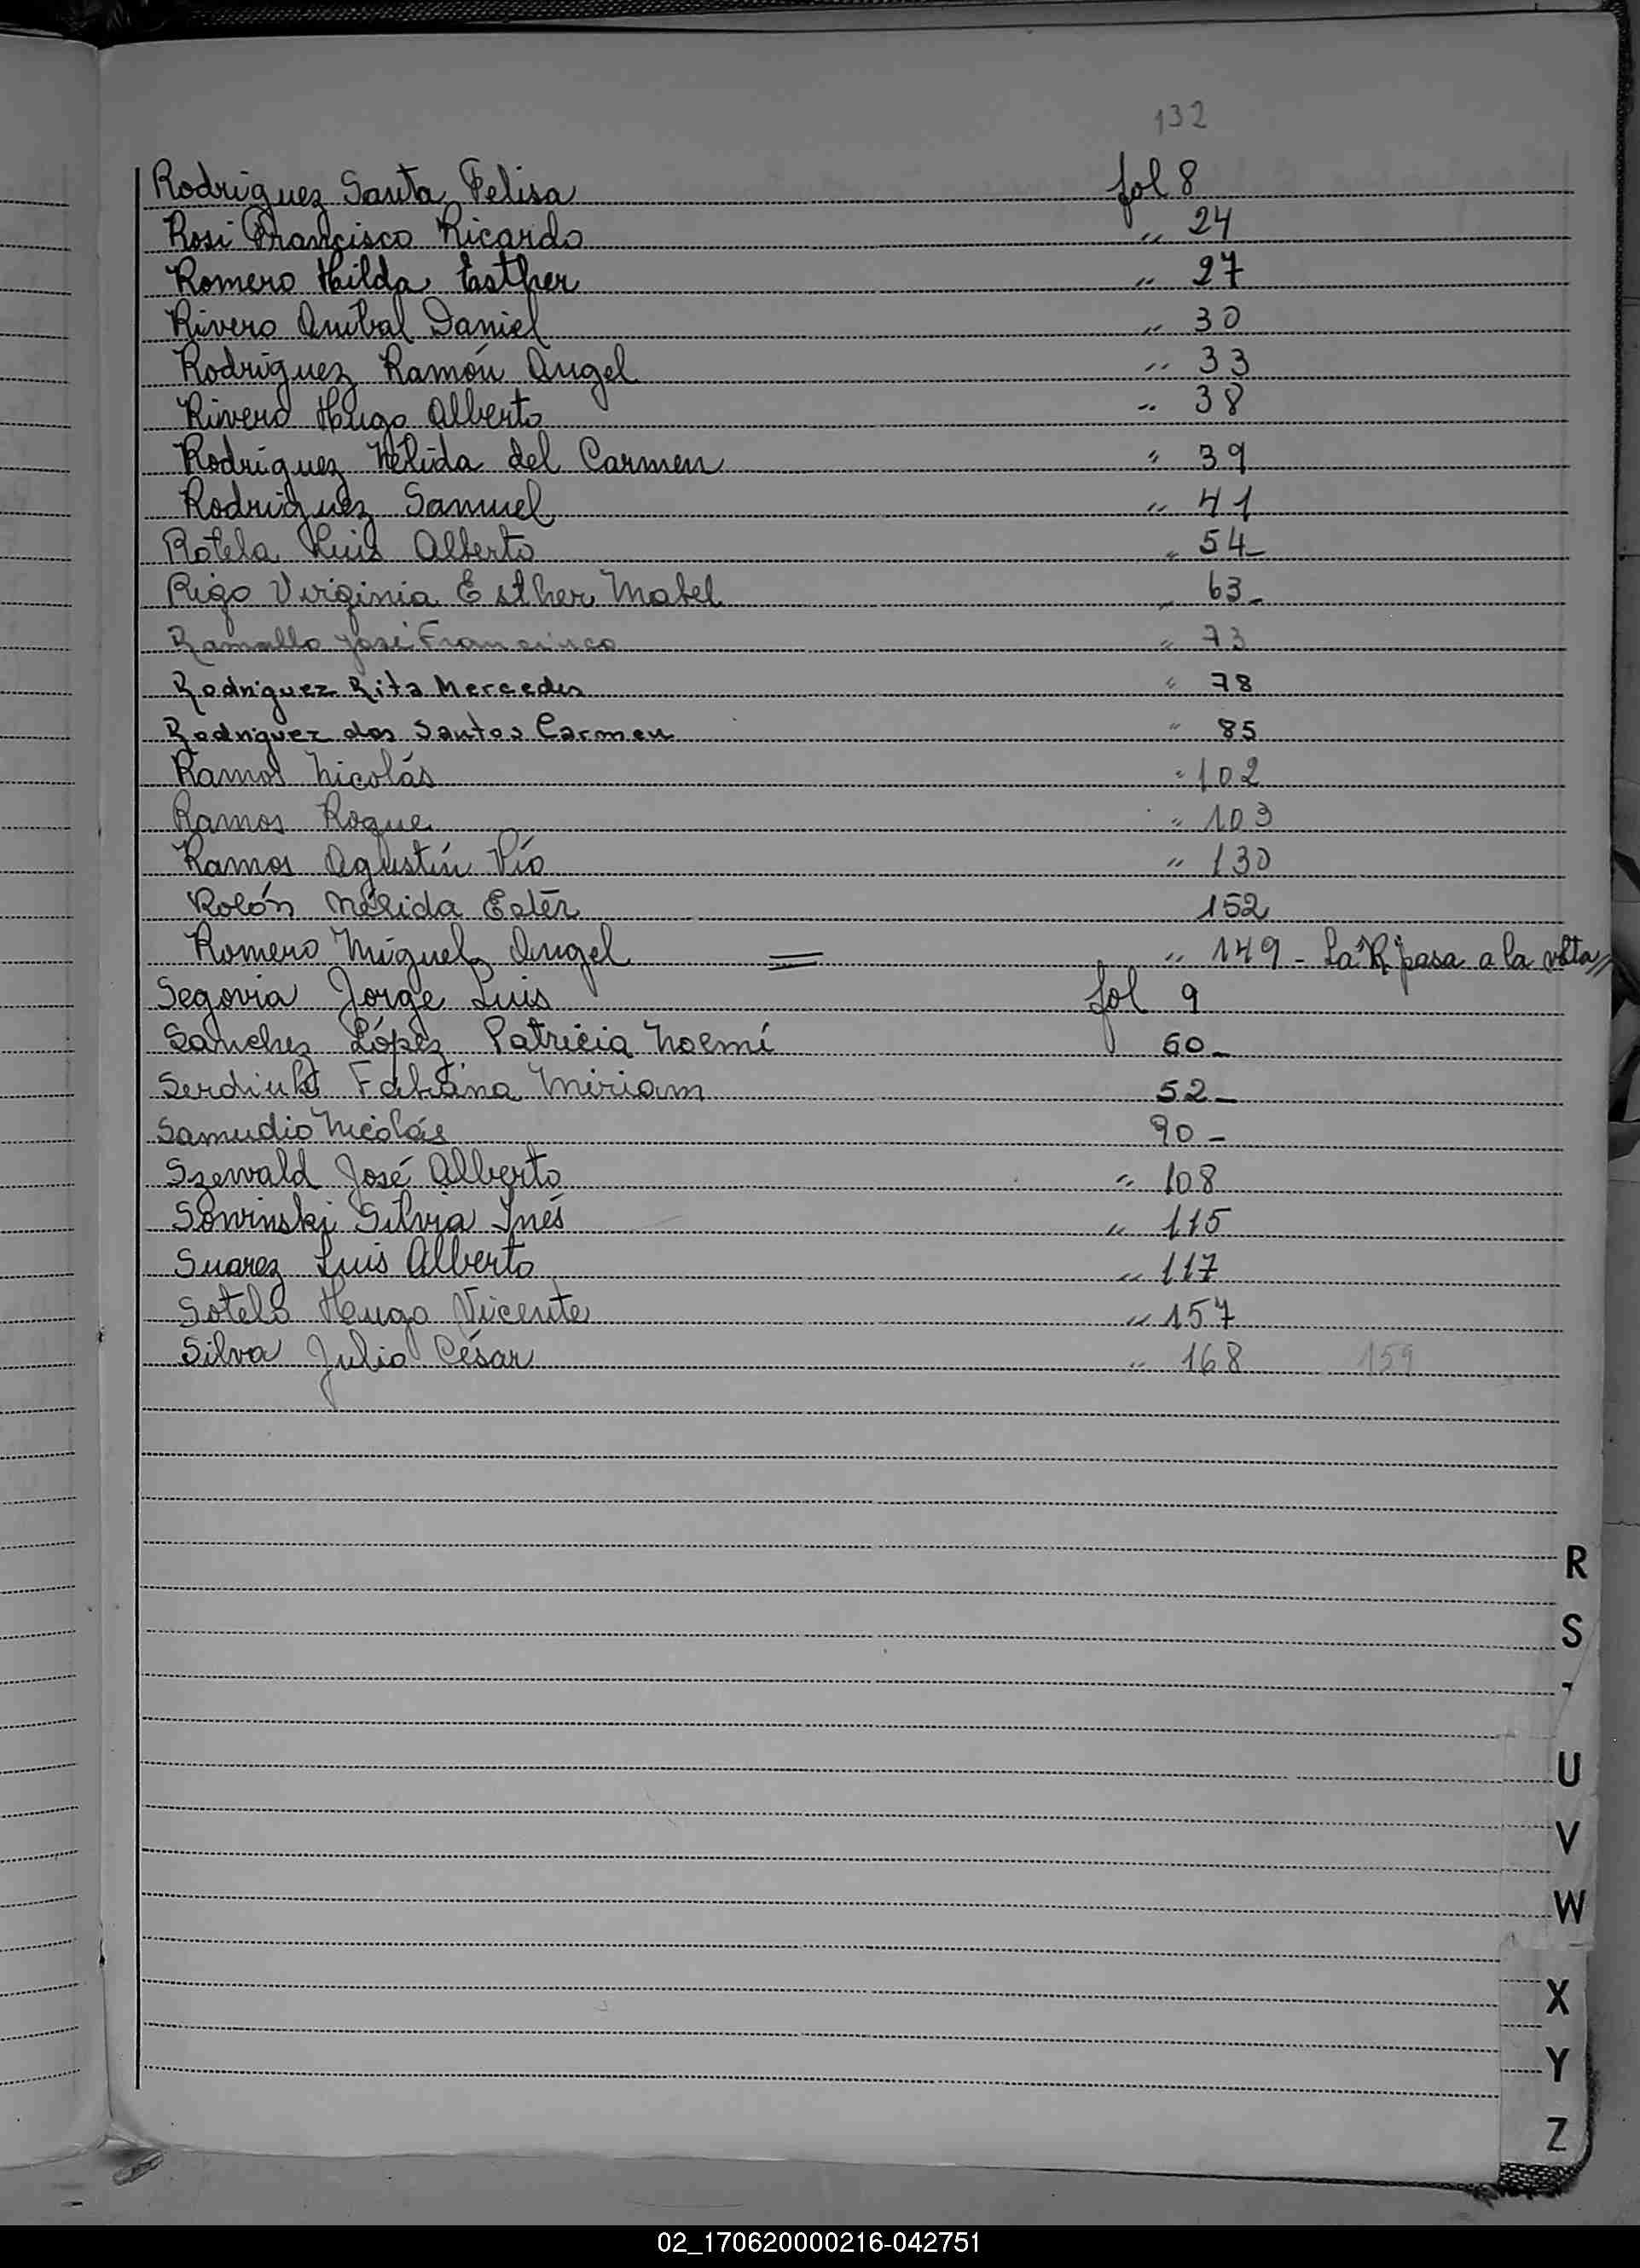 132
Rodriguez Santa Felisa fol 8
Rosi Francisco Ricardo " 24
Romero Hilda Esther " 27
Rivero Anibal Daniel " 30
Rodriguez Ramón Angel " 33
Rivero Hugo Alberto " 38
Rodriguez Nélida del Carmen " 39
Rodriguez Samuel " 41
Rotela Luis Alberto " 54-
Rigo Virginia Esther Mabel " 63-
Ramallo José Francisco " 73
Rodriguez Rita Mercedes " 78
Rodriguez dos Santos Carmen " 85
Ramos Nicolás " 102
Ramos Roque " 103
Ramos Agustín Pío " 130
Rolón Nélida Ester 152
Romero Miguel Angel = " 149 - La "R" pasa a la vlta//
Segovia Jorge Luis fol 9
Sanchez López Patricia Noemí 60-
Fabiana Miriam 52-
Samudio Nicolás 90-
Szewald José Alberto " 108
Sowinski Silvia Inés " 115
Suarez Luis Alberto " 117
Sotelo Hugo Vicente " 157
Silva Julio César " 168 159
R
S
U
V
W
X
Y
Z
02_170620000216-042751